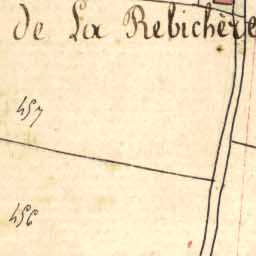 de La Rebichère
457
456